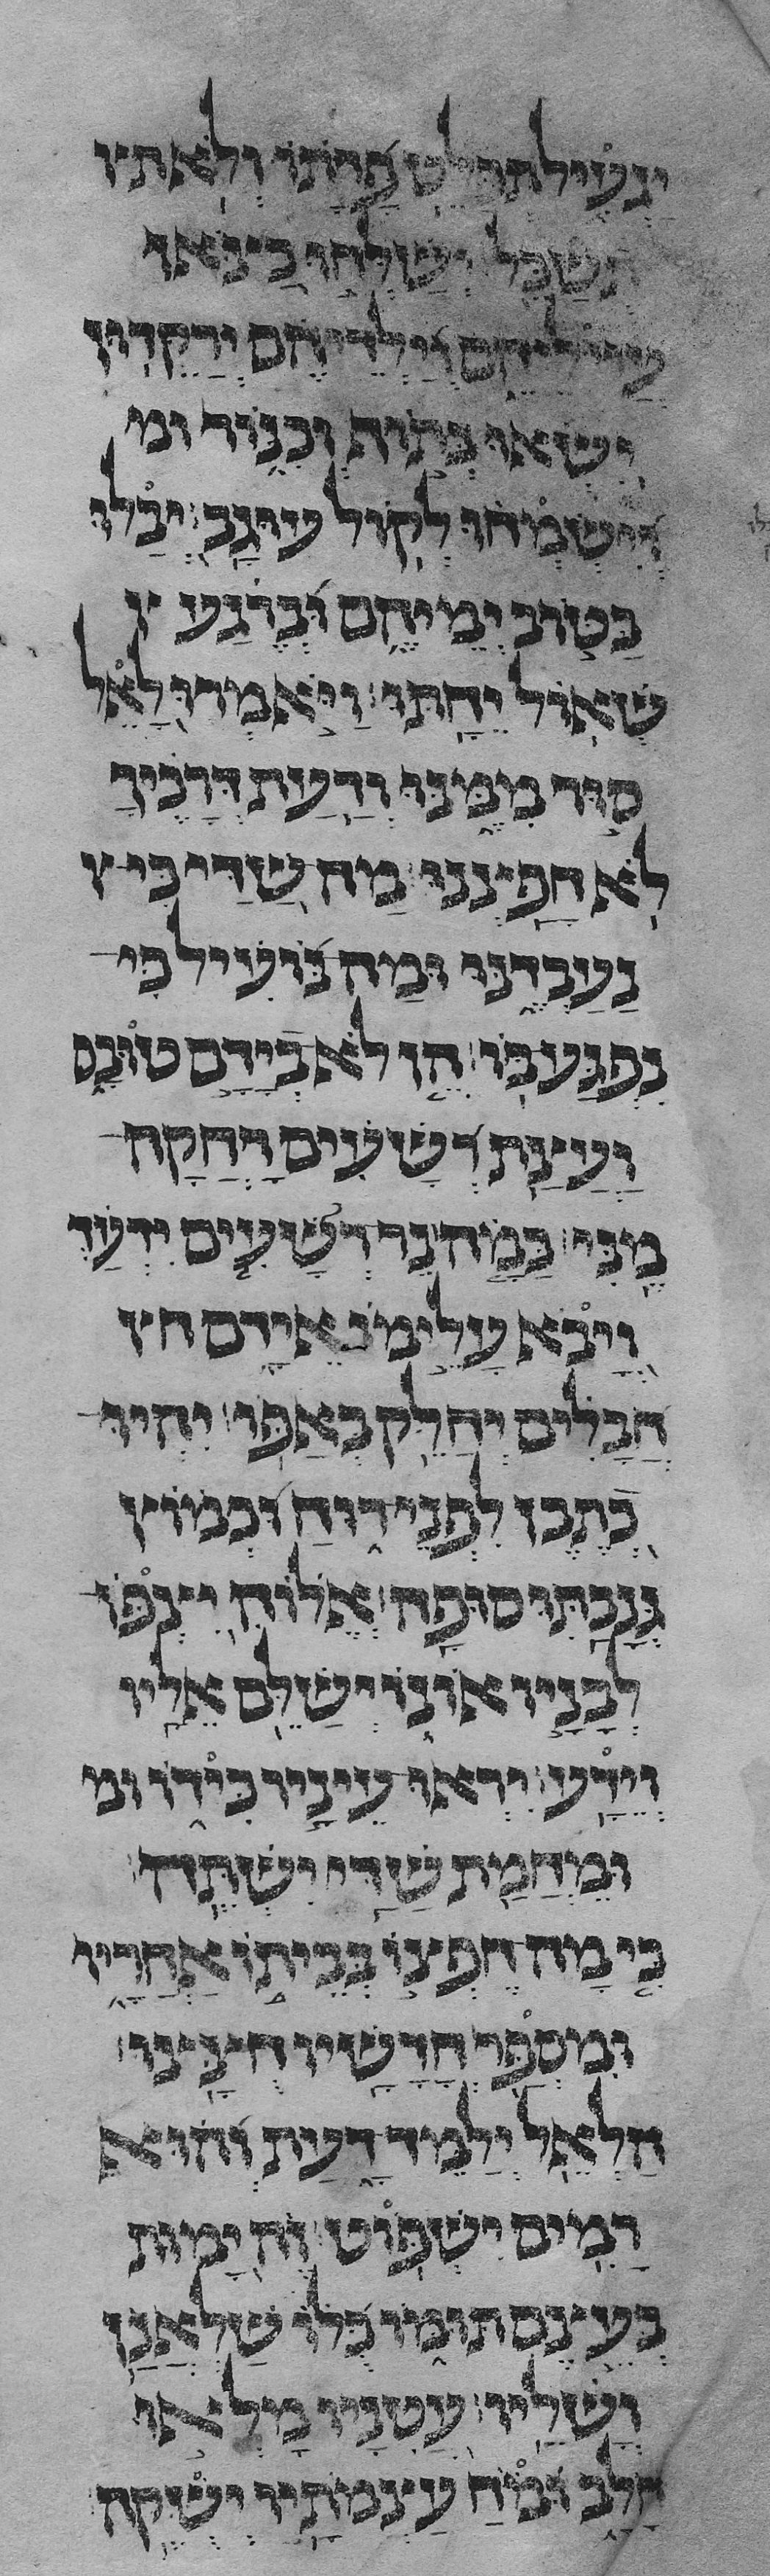 יגעיל תפלט פרתו ולא
תשכל ישלחו כצאן
עויליהם וילדיהם ירקדון
ישאו כתוף וכנור ומ
וישמחו לקול עוגב יבלו
בטוב ימיהם וברגע
שאול יחתו ויאמרו לאל
סור ממנו ודעת דרכיך
לא חפצנו מה שדי כי
נעבדנו ומה נועיל כי
נפגע בו הן לא בידם טובם
ועצת רשעים רחקה
מני כמה נר רשעים ידעך
ויבא עלימו אידם ח
חבלים יחלק באפו יהיו
כתבן לפני רוח וכמוץ
גנבתו סופה אלוה יצפן
לבניו אונו ישלם אליו
וידע יראו עיניו כידו ומ
ומחמת שדי ישתה
כי מה חפצו בביתו אחריו
ומספר חדשיו חצצו
הלאל ילמד דעת והוא
רמים ישפוט זה ימות
בעצם תומו כלו שלאנן
ושליו עטניו מלאו
חלב ומח עצמתיו ישקה